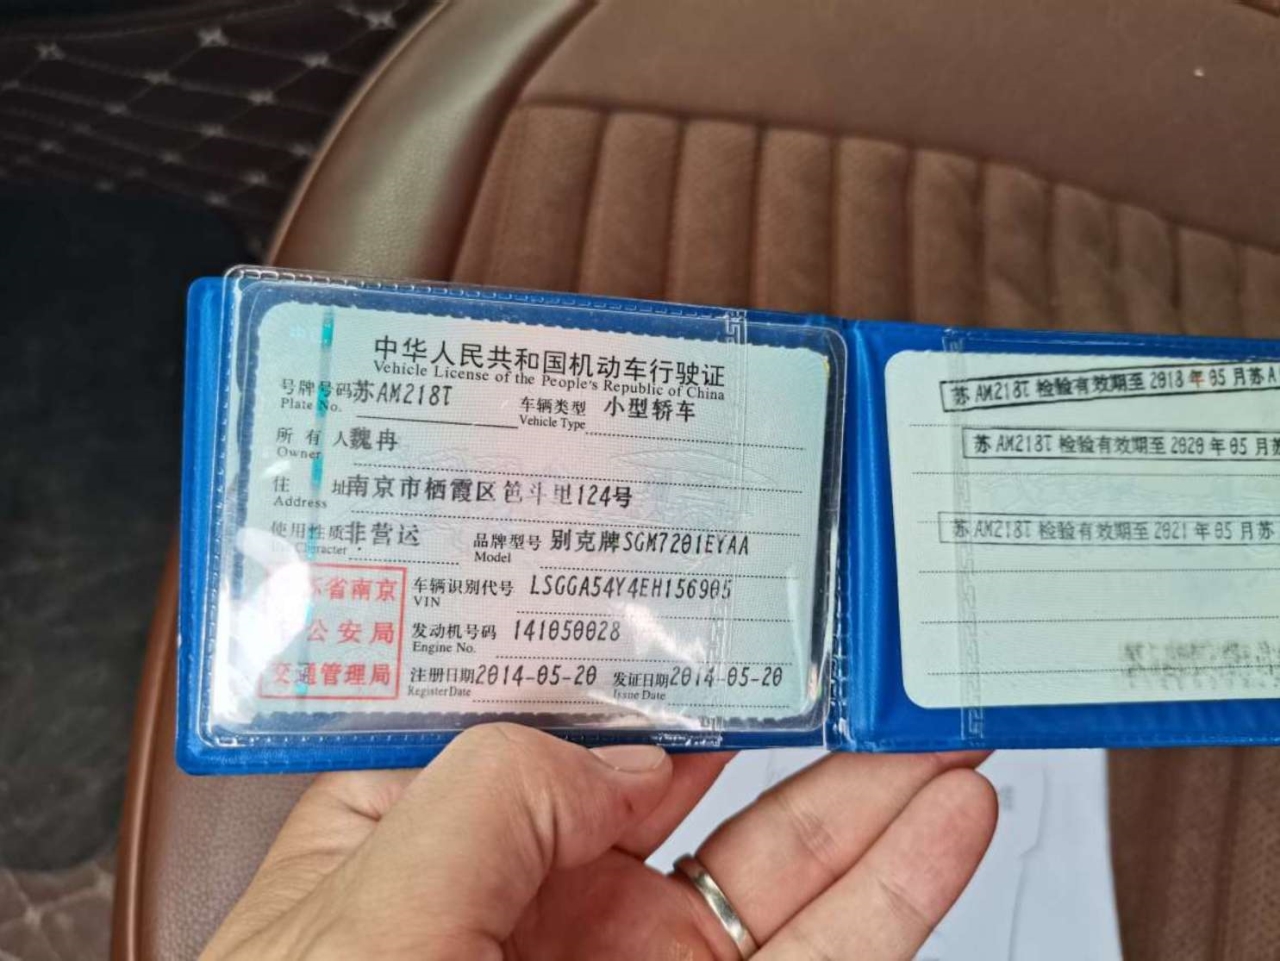 中华人民共和国机动车行驶证
Vehicle License of the People's Republic of China
号牌号码 苏AM218T 车辆类型 小型轿车
Plate No. Vehicle Type
所有人 魏冉
Owner
住址 南京市栖霞区笆斗里124号
Address
使用性质 非营运 品牌型号 别克牌SGM7201EYAA
Character Model
省南京 车辆识别代号 LSGGA54Y4EH156905
VIN
公安局 发动机号码 141050028
Engine No.
交通管理局 注册日期 2014-05-20 发证日期 2014-05-20
Register Date Issue Date
苏AM218T 检验有效期至 2018年05月苏A
苏AM218T 检验有效期至 2020年05月苏
苏AM218T 检验有效期至 2021年05月苏